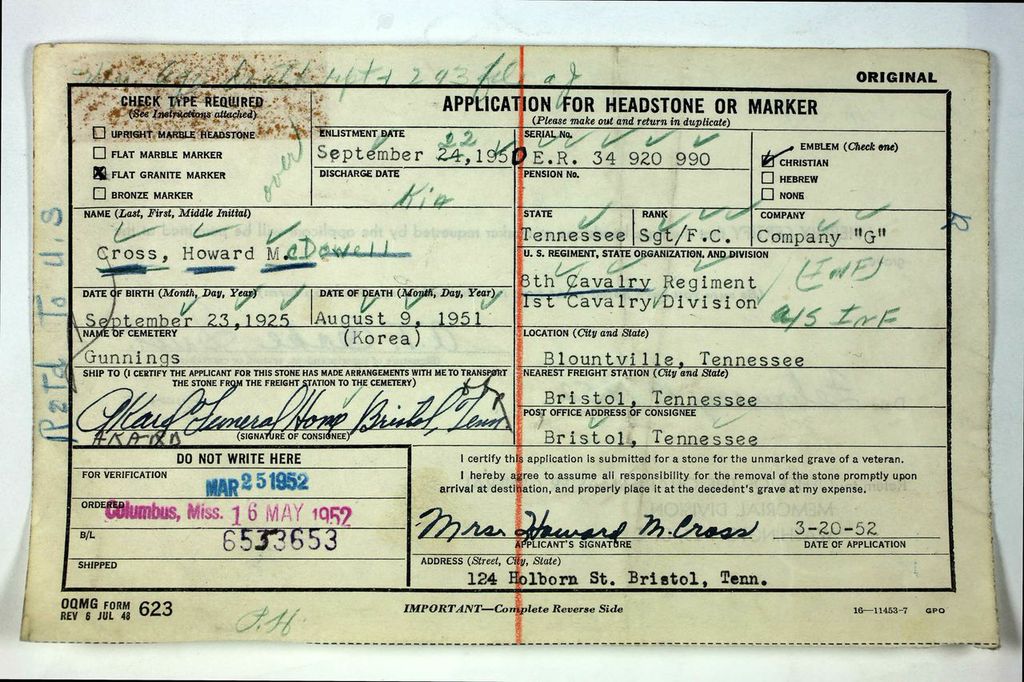 ORIGINAL
CHECK TYPE REQUIRED
(See Instructions attached)
UPRIGHT MARBLE HEADSTONE
FLAT MARBLE MARKER
FLAT GRANITE MARKER
BRONZE MARKER
over
APPLICATION FOR HEADSTONE OR MARKER
(Please make out and return in duplicate)
ENLISTMENT DATE
22
September 24, 1950
DISCHARGE DATE
Kia
SERIAL No.
E.R. 34 920 990
PENSION No.
EMBLEM (Check one)
CHRISTIAN
HEBREW
NONE
NAME (Last, First, Middle Initial)
Cross, Howard McDowell
STATE
Tennessee
RANK
Sgt/F.C.
COMPANY
Company "G"
U. S. REGIMENT, STATE ORGANIZATION, AND DIVISION
8th Cavalry Regiment (INF)
1st Cavalry Division
a/s INF
DATE OF BIRTH (Month, Day, Year)
September 23,1925
DATE OF DEATH (Month, Day, Year)
August 9, 1951
(Korea)
NAME OF CEMETERY
Gunnings
LOCATION (City and State)
Blountville, Tennessee
SHIP TO (I CERTIFY THE APPLICANT FOR THIS STONE HAS MADE ARRANGEMENTS WITH ME TO TRANSPORT
THE STONE FROM THE FREIGHT STATION TO THE CEMETERY)
Akard Funeral Home Bristol, Tenn
AKARD
(SIGNATURE OF CONSIGNEE)
NEAREST FREIGHT STATION (City and State)
Bristol, Tennessee
POST OFFICE ADDRESS OF CONSIGNEE
Bristol, Tennessee
Retd To U.S
DO NOT WRITE HERE
FOR VERIFICATION
MAR 25 1952
ORDERED
Columbus, Miss. 16 MAY 1952
B/L
6533653
SHIPPED
I certify this application is submitted for a stone for the unmarked grave of a veteran.
I hereby agree to assume all responsibility for the removal of the stone promptly upon
arrival at destination, and properly place it at the decedent's grave at my expense.
Mrs. Howard M. Cross
3-20-52
APPLICANT'S SIGNATURE
DATE OF APPLICATION
ADDRESS (Street, City, State)
124 Holborn St. Bristol, Tenn.
OQMG FORM
REV 6 JUL 48
623
IMPORTANT—Complete Reverse Side
16—11453-7 GPO